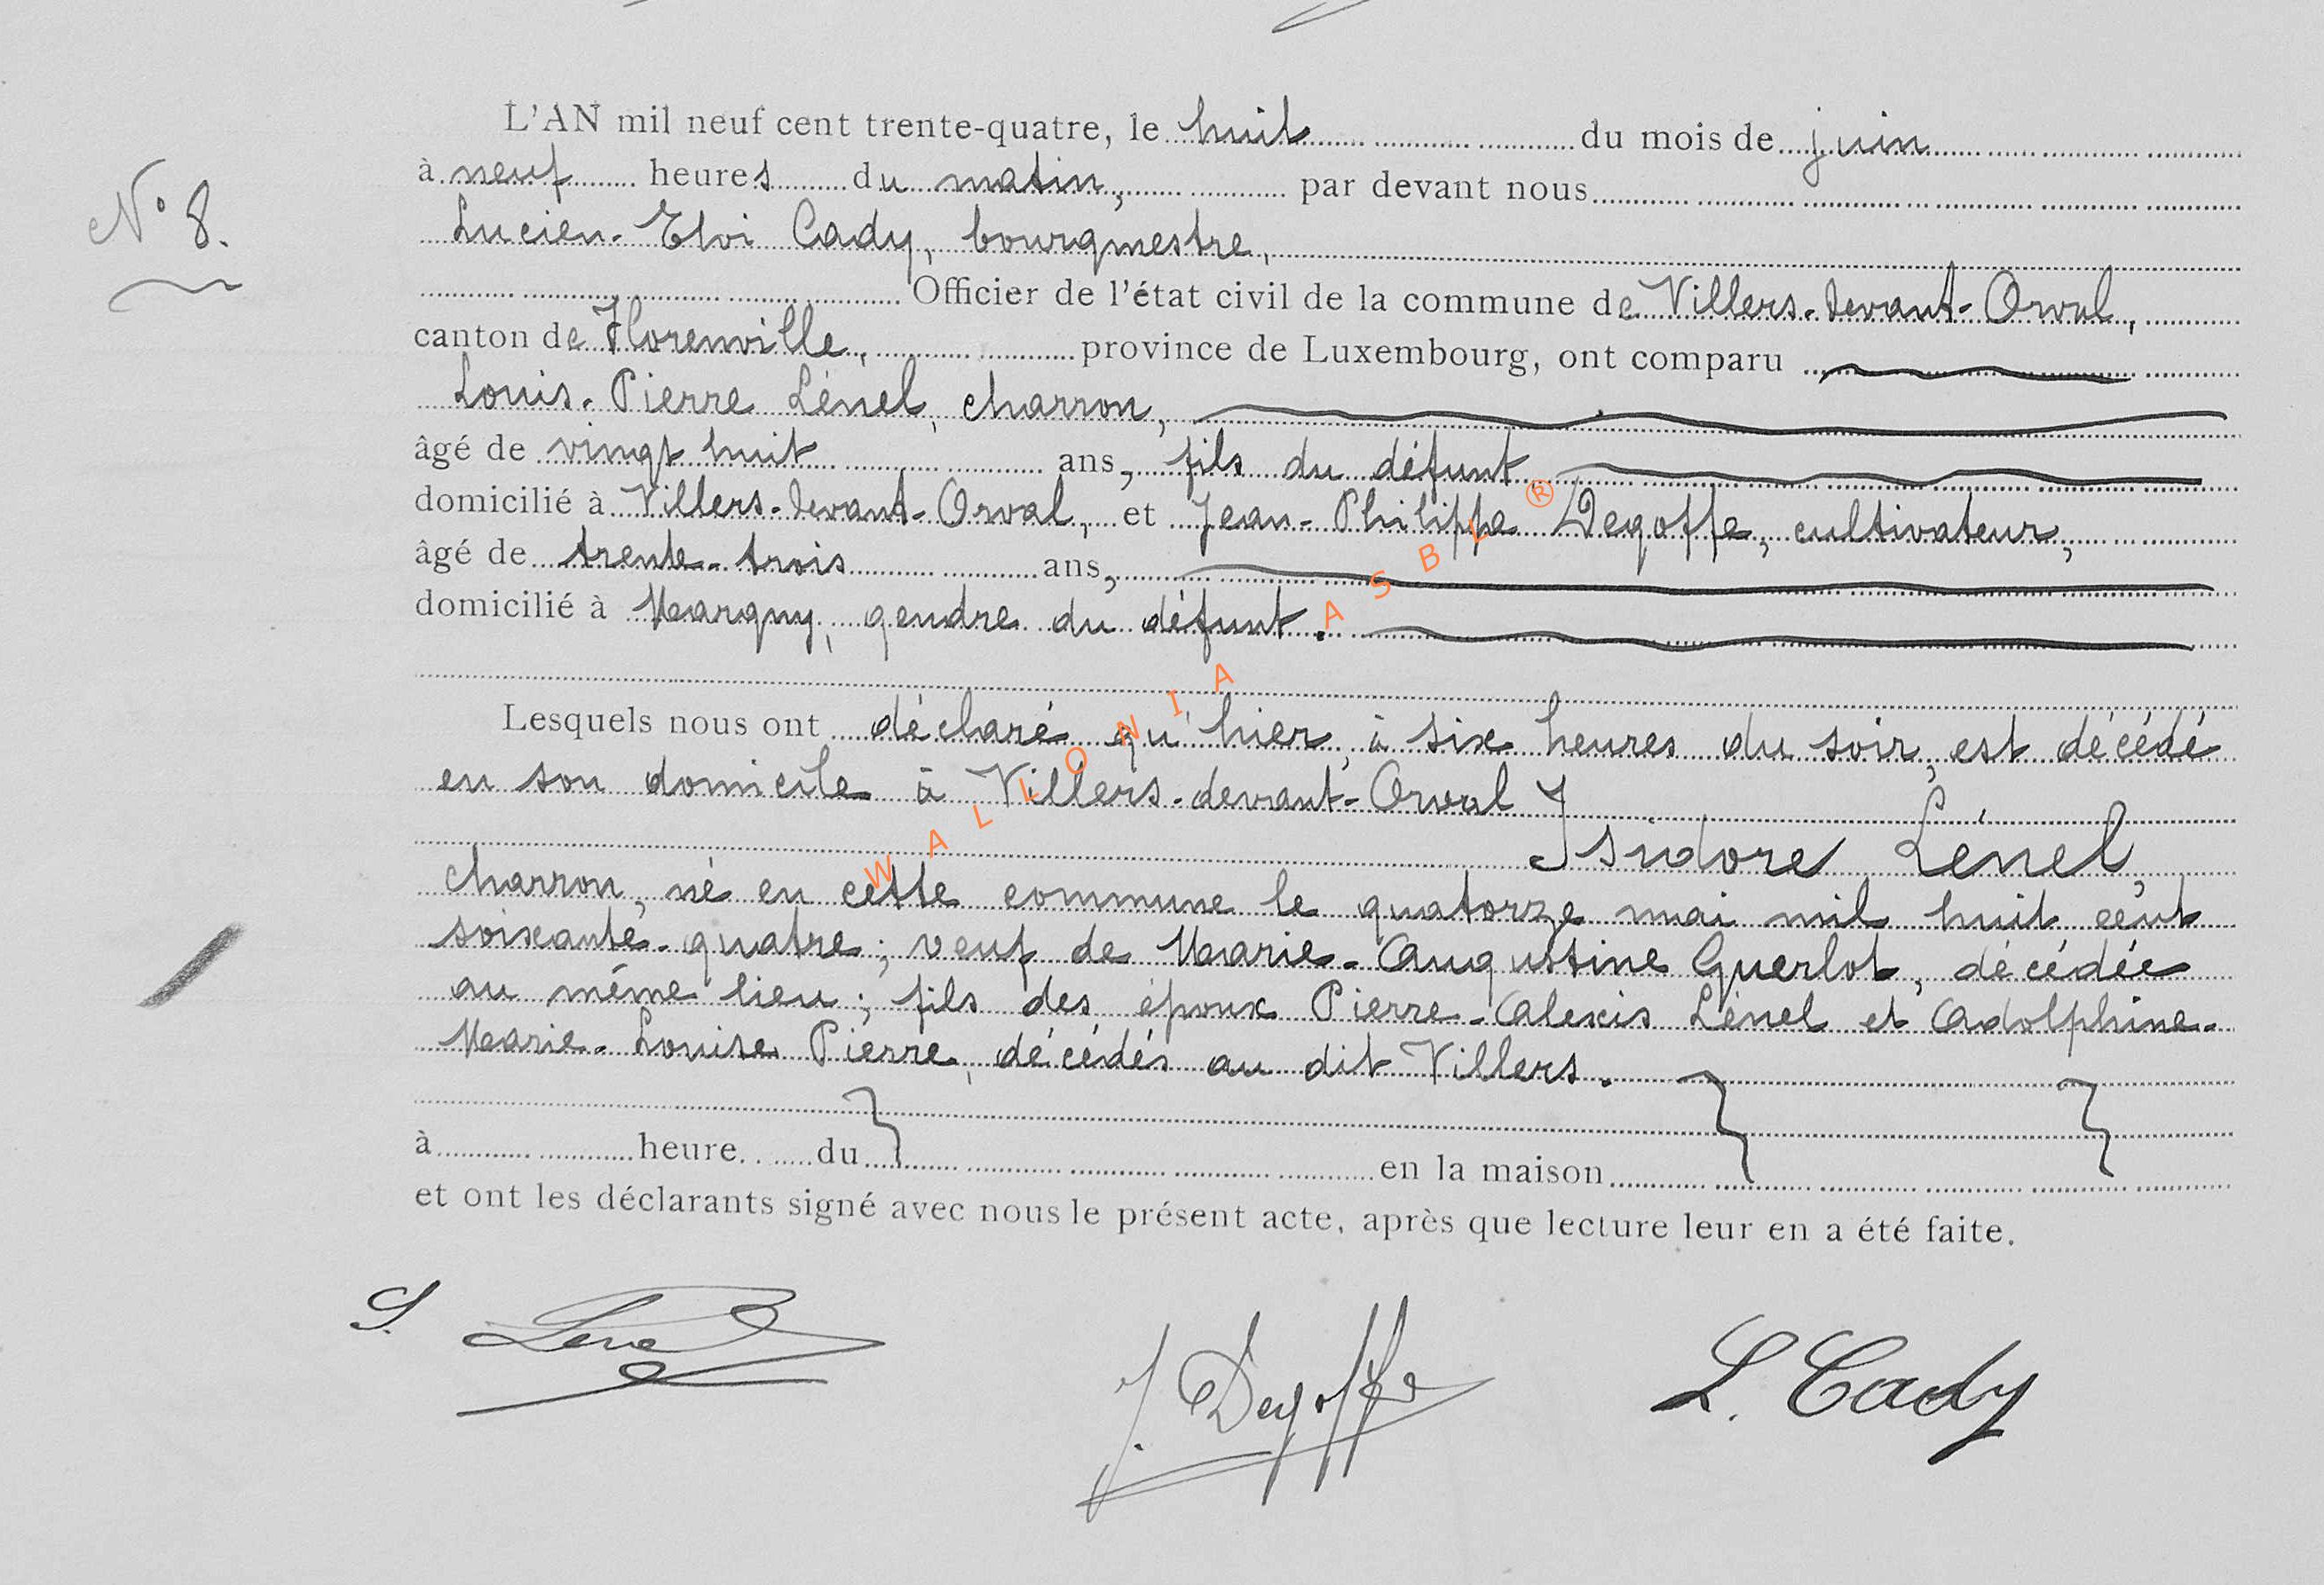 L'AN mil neuf cent trente-quatre, le huit du mois de juin
à neuf heures du matin, par devant nous
N° 8.
Lucien-Eloi Cady, bourgmestre,
Officier de l'état civil de la commune de Villers-devant-Orval,
canton de Florenville, province de Luxembourg, ont comparu
Louis-Pierre Lénel, charron,
âgé de vingt huit ans, fils du défunt
domicilié à Villers-devant-Orval, et Jean-Philippe Degoffe, cultivateur,
âgé de trente-trois ans,
domicilié à Margny, gendre du défunt.
Lesquels nous ont déclaré qu'hier, à six heures du soir, est décédé
en son domicile à Villers-devant-Orval
Isidore Lénel,
charron, né en cette commune le quatorze mai mil huit cent
soixante-quatre; veuf de Marie-Augustine Guerlot, décédée
au même lieu; fils des époux Pierre-Alexis Lénel et Adolphine-
Marie-Louise Pierre, décédés au dit Villers.
à heure du en la maison
et ont les déclarants signé avec nous le présent acte, après que lecture leur en a été faite.
L. Lénel
J. Degoffe
L. Cady
WALLONIA ASBL ®